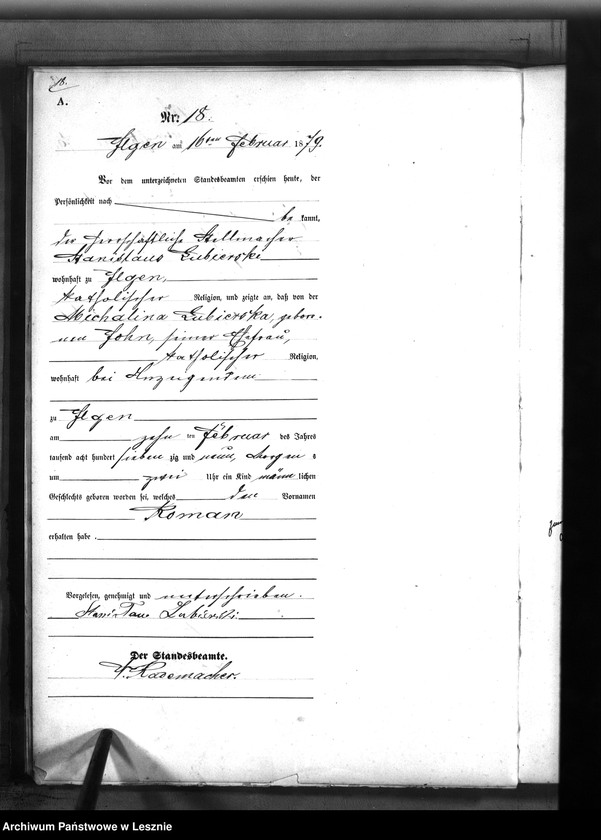 18.
A.
Nr. 18.
Ilgen am 16ten Februar 1879.
Vor dem unterzeichneten Standesbeamten erschien heute, der
Persönlichkeit nach
be kannt,
der herrschaftliche Stellmacher
Stanislaus Lubierski
wohnhaft zu Ilgen,
katholischer Religion, und zeigte an, daß von der
Michalina Lubierska, gebore-
nen John, seiner Ehefrau,
katholischer Religion,
wohnhaft bei
zu Ilgen
am zehn ten Februar des Jahres
tausend acht hundert sieben zig und neun, Morgens
um zwei Uhr ein Kind männ lichen
Geschlechts geboren worden sei, welches den Vornamen
Roman
erhalten habe.
Vorgelesen, genehmigt und unterschrieben.
Lubierski
Der Standesbeamte.
Rademacher.
Archiwum Państwowe w Lesznie